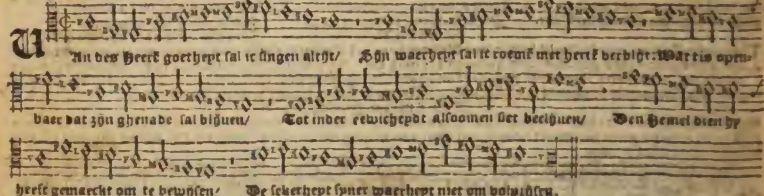 VAn des Heerē goetheyt sal ic singen altijt/ Zijn waerheyt sal ic roemē met hertē verblijt: Want tis open-
baer dat zijn ghenade sal blijuen/ Tot inder eewicheydt alsoomen siet beclijuen/ Den Hemel dien hy
heeft gemaeckt om te bewijsen/ De sekerheyt syner waerheyt niet om volprijsen.